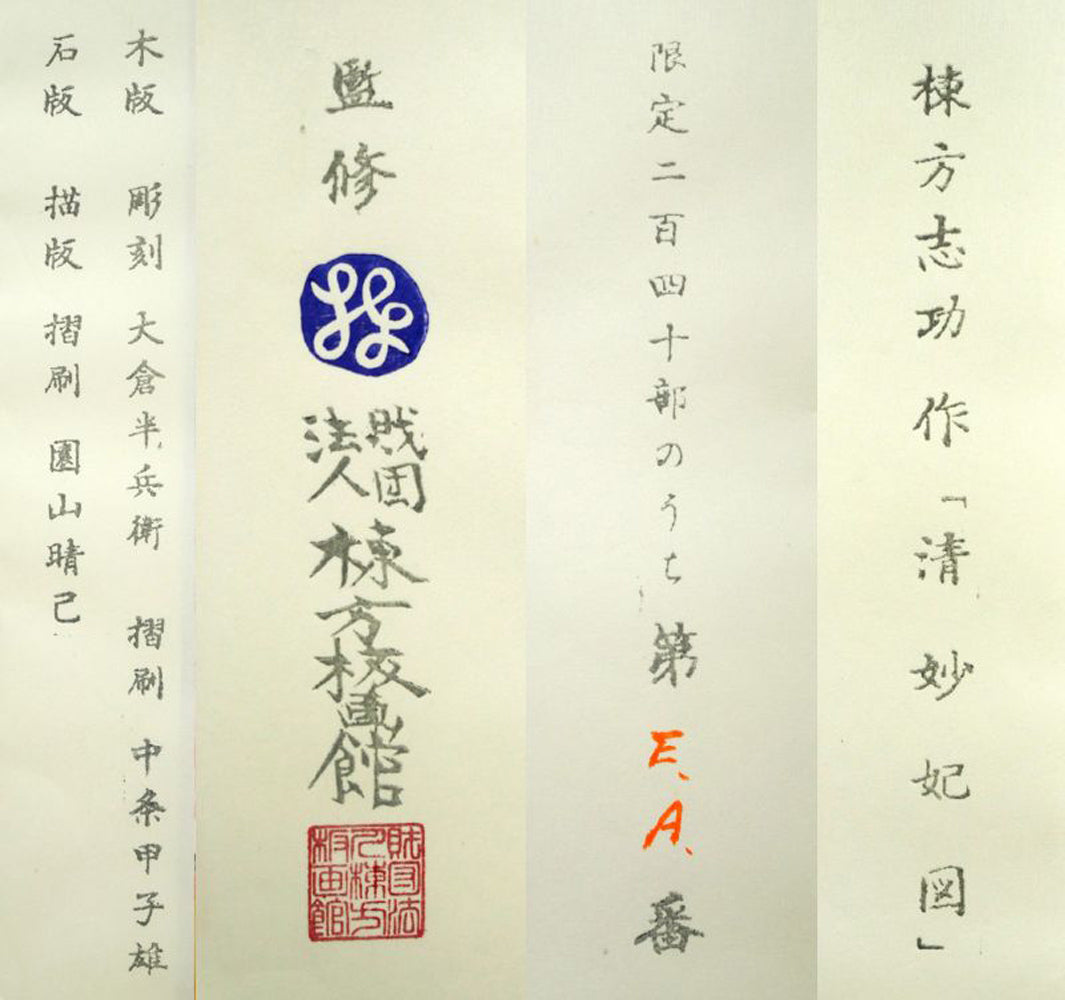 棟方志功 作「清妙妃図」
限定二百四十部のうち第E.A.番
監修
財団
法人
棟方板画館
財団法
人棟方
板画館
木版 彫刻 大倉半兵衛 摺刷 中条甲子雄
石版 描版 摺刷 園山晴己